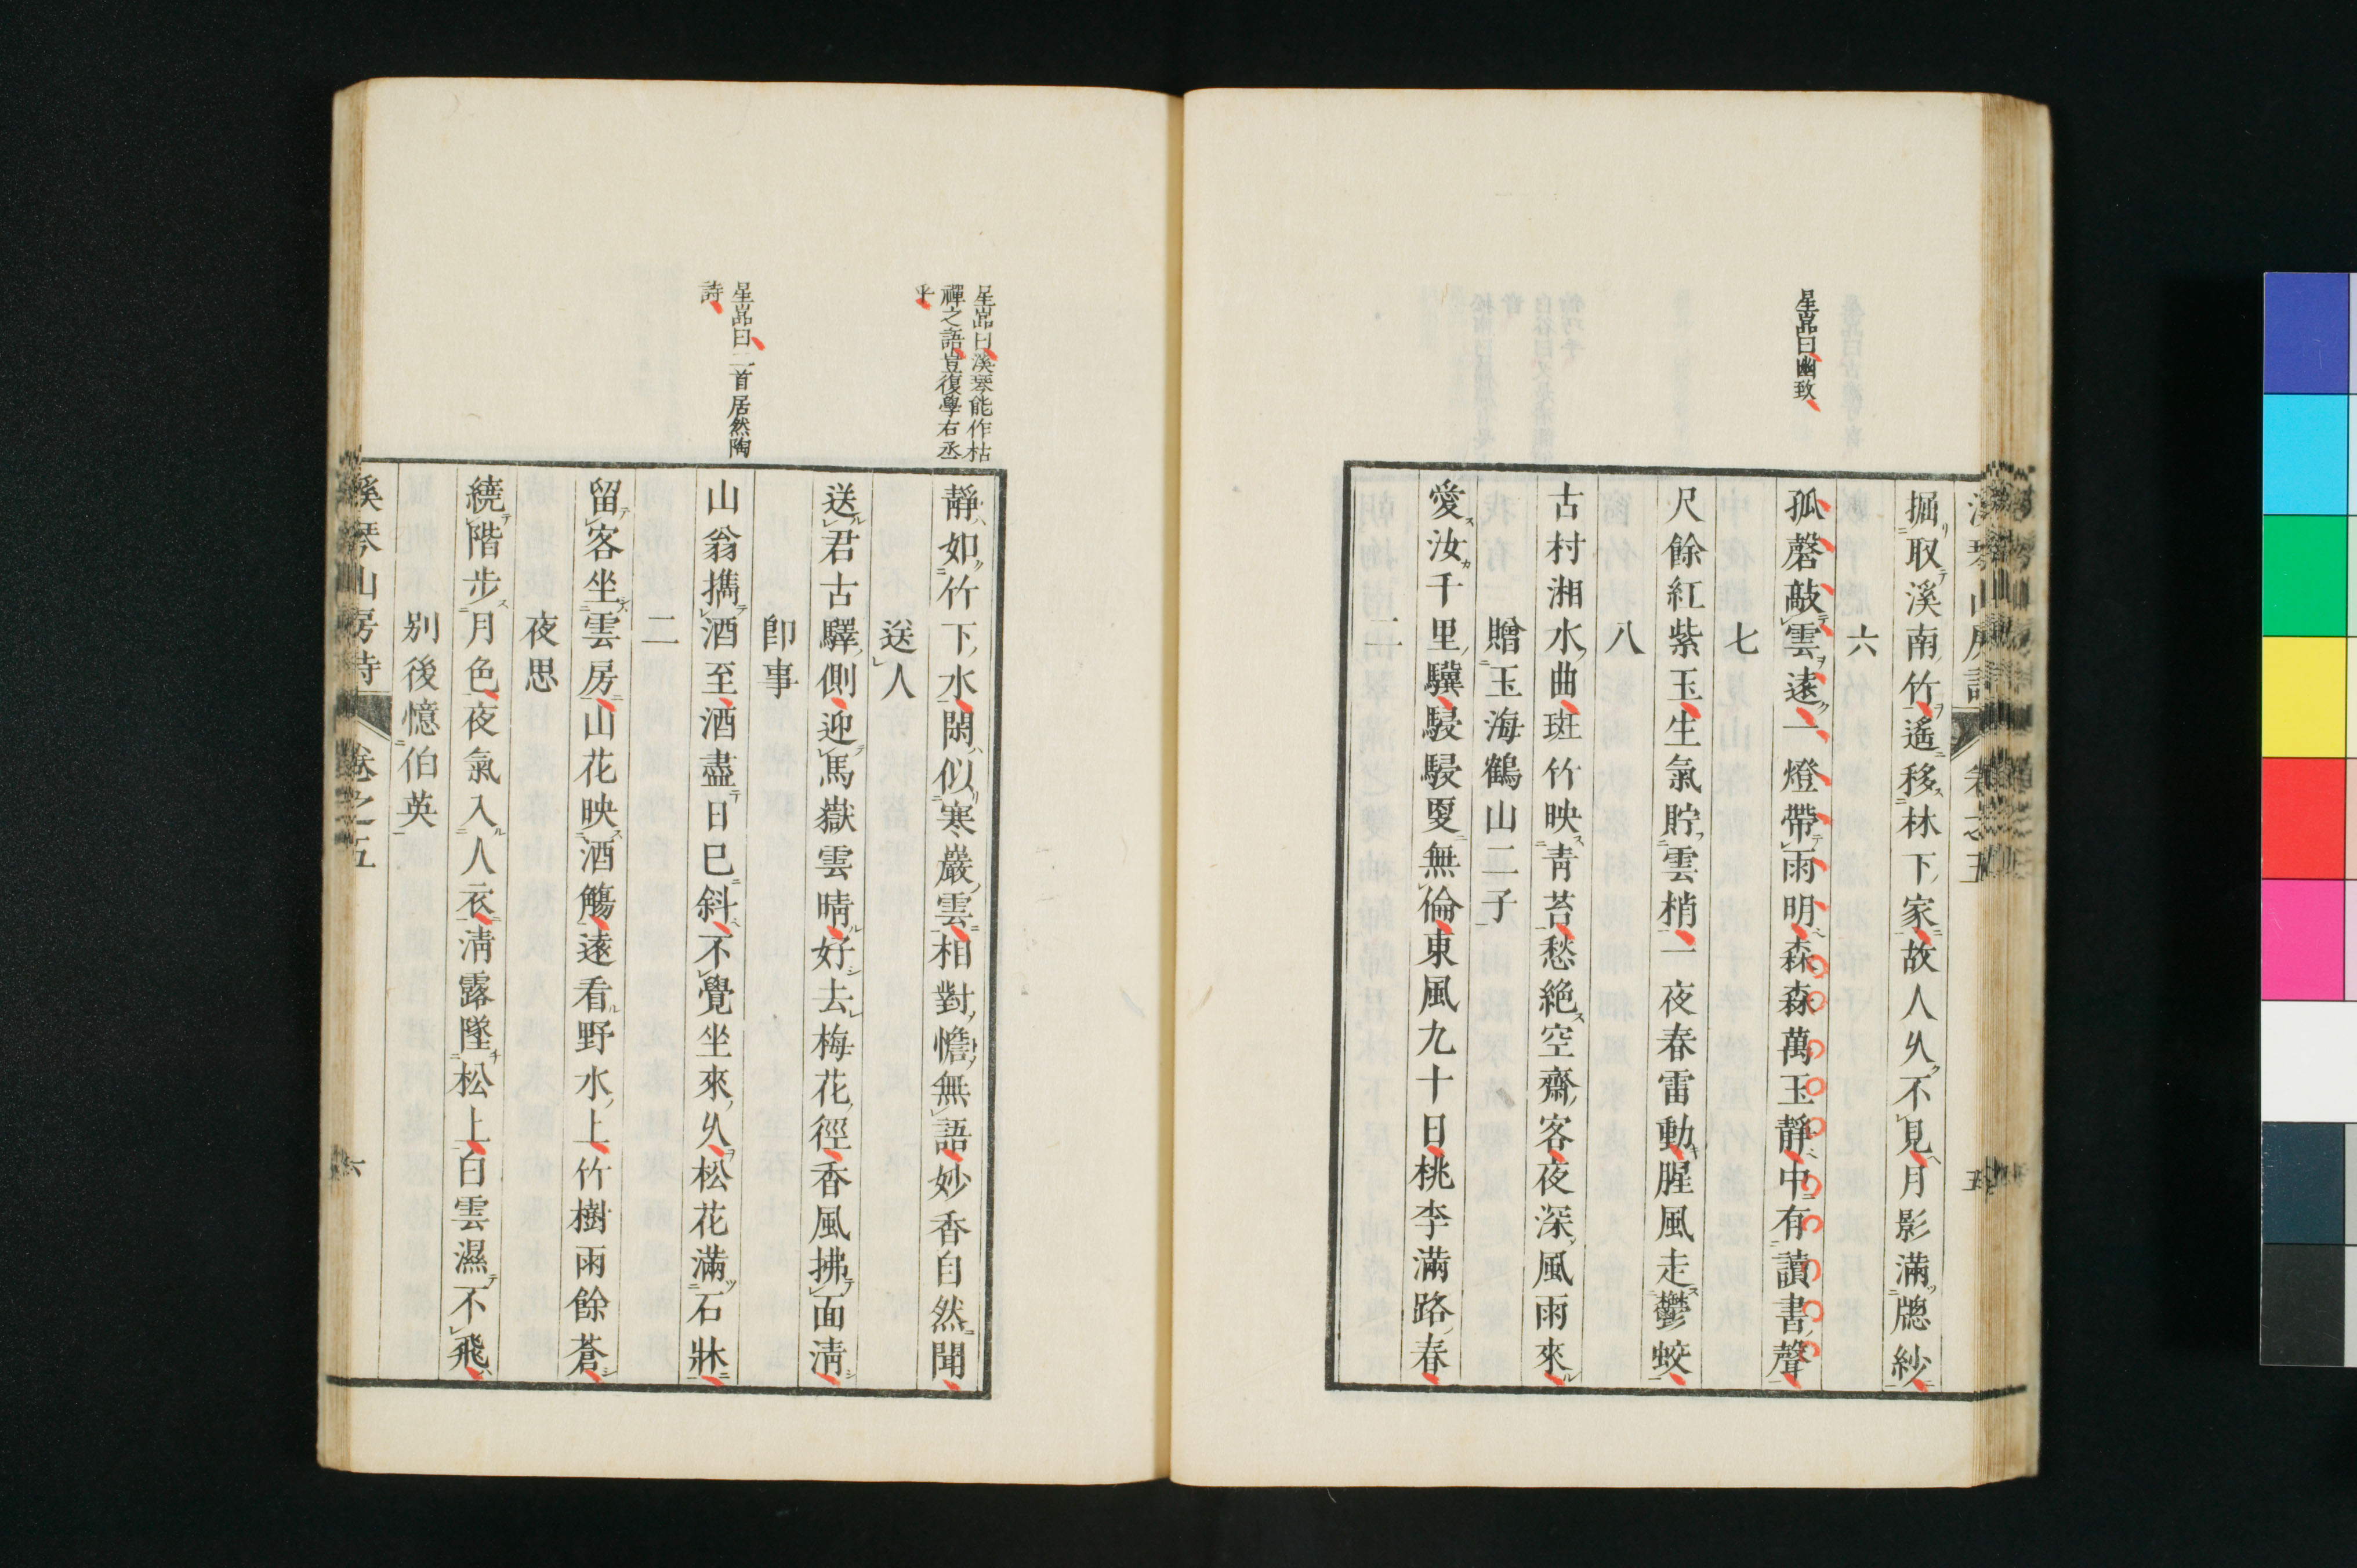 星嵓曰幽致
掘取溪南竹遙移林下家故人久不見月影滿牕紗
六
孤磬敲雲遠一燈帶雨明森森萬玉靜中有讀書聲
七
尺餘紅紫玉生氣貯雲梢一夜春雷動腥風走鬱蛟
八
古村湘水曲斑竹映靑苔愁絶空齋客夜深風雨來
贈玉海鶴山二子
愛汝千里驥駸駸夐無倫東風九十日桃李滿路春
二
五
星嵓曰溪琴能作枯
禪之語豈復學右丞
乎
星嵓曰二首居然陶
詩
靜如竹下水閑似寒巖雲相對憺無語妙香自然聞
送人
送君古驛側迎馬嶽雲晴好去梅花徑香風拂面淸
卽事
山翁攜酒至酒盡日已斜不覺坐來久松花滿石牀
二
留客坐雲房山花映酒觴遠看野水上竹樹雨餘蒼
夜思
繞階步月色夜氣入人衣淸露墜松上白雲濕不飛
别後憶伯英
溪琴山房詩 卷之五 六